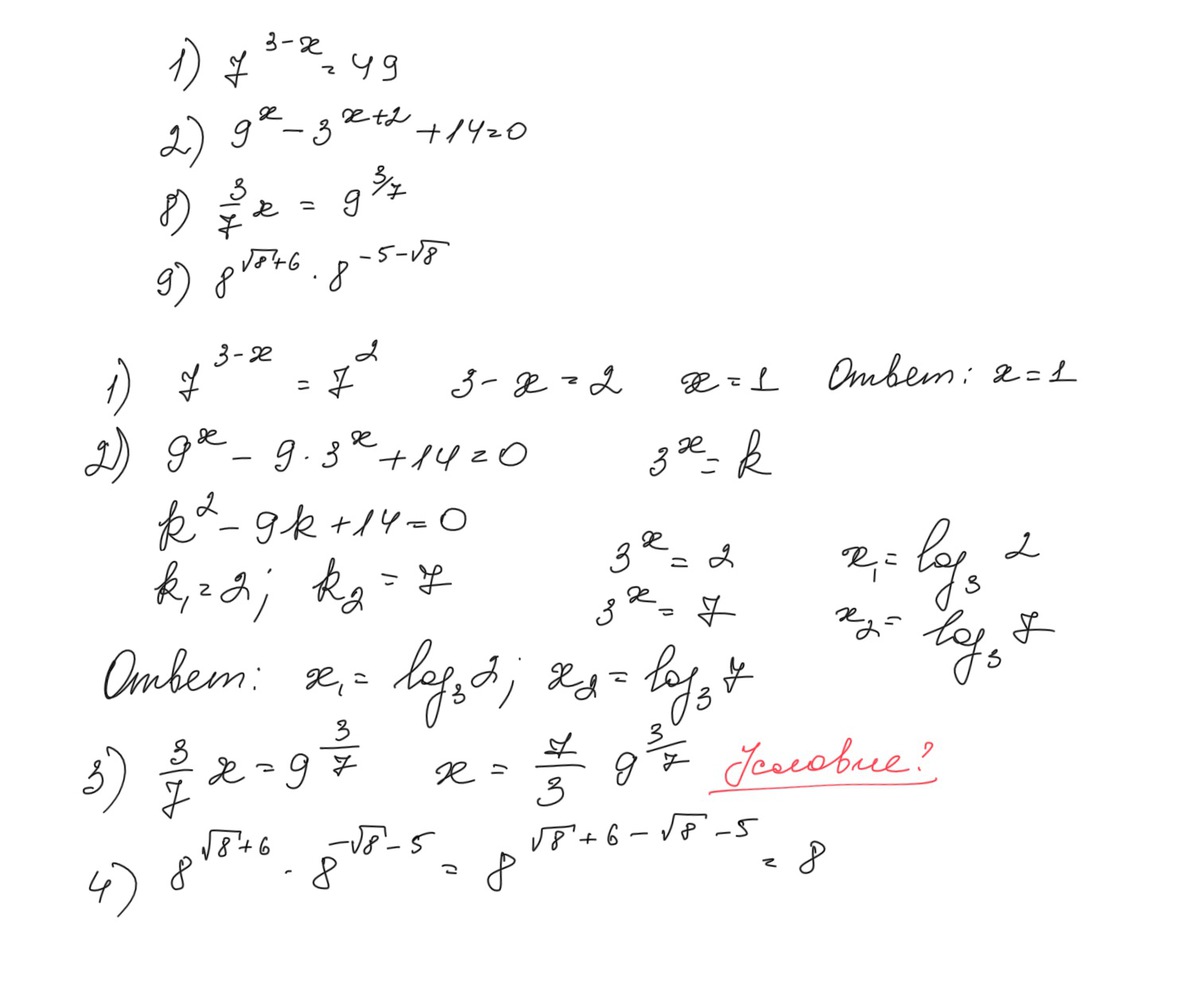 1) 7^{3-x} = 49
2) 9^x - 3^{x+2} + 14 = 0
8) \frac{3}{7} x = 9^{3/7}
9) 8^{\sqrt{8}+6} · 8^{-5-\sqrt{8}}
1) 7^{3-x} = 7^2 3 - x = 2 x = 1 Ответ: x = 1
2) 9^x - 9 · 3^x + 14 = 0 3^x = k
k^2 - 9k + 14 = 0
k_1 = 2; k_2 = 7 3^x = 2 x_1 = log_3 2
3^x = 7 x_2 = log_3 7
Ответ: x_1 = log_3 2; x_2 = log_3 7
3) \frac{3}{7} x = 9^{\frac{3}{7}} x = \frac{7}{3} 9^{\frac{3}{7}} Условие?
4) 8^{\sqrt{8}+6} · 8^{-\sqrt{8}-5} = 8^{\sqrt{8}+6-\sqrt{8}-5} = 8